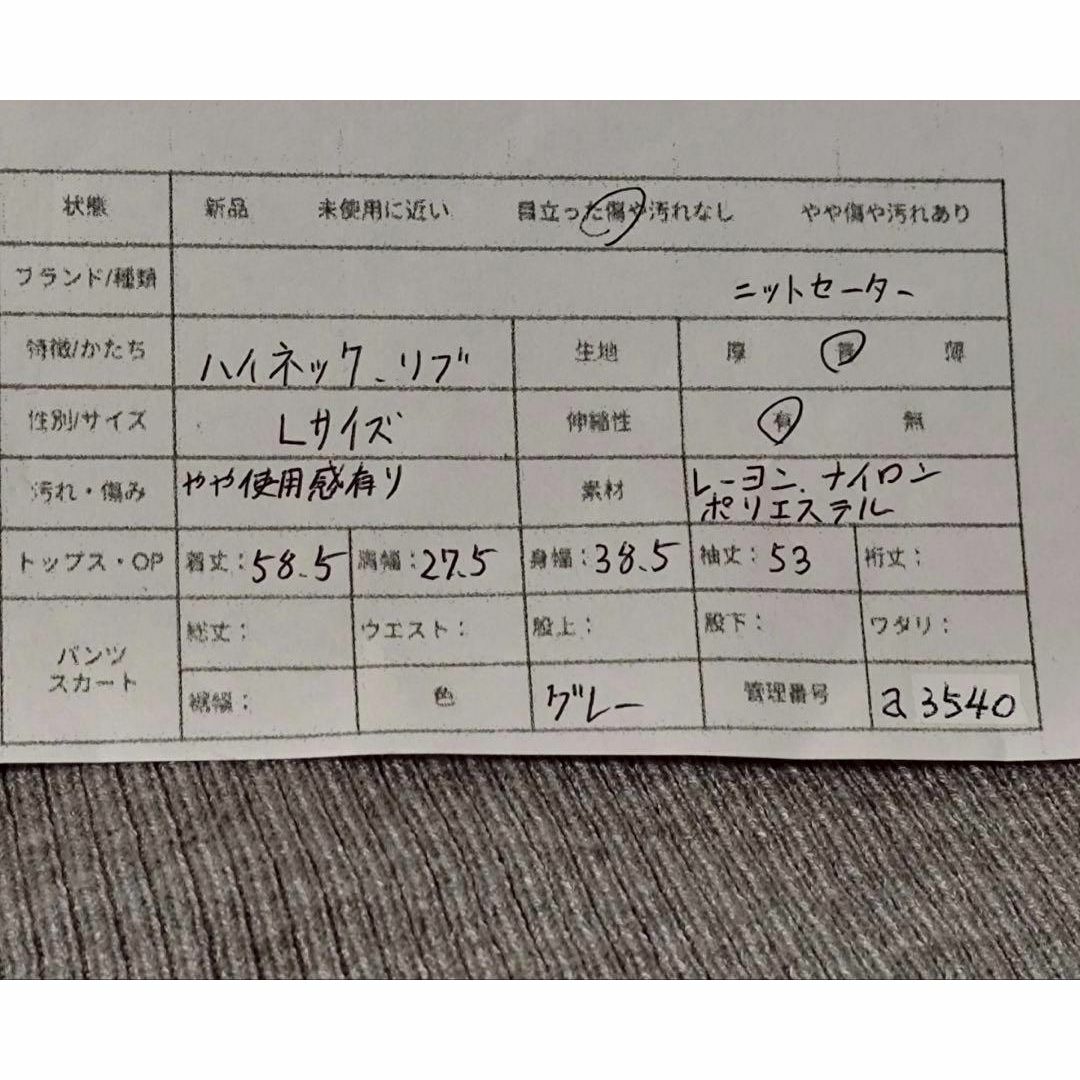 状態 新品 未使用に近い 目立った傷や汚れなし やや傷や汚れあり
ブランド/種類 ニットセーター
特徴/かたち ハイネック、リブ 生地 厚 普 薄
性別/サイズ Lサイズ 伸縮性 有 無
汚れ・傷み やや使用感有り 素材 レーヨン、ナイロン
ポリエステル
トップス・OP 着丈:58.5 肩幅:27.5 身幅:38.5 袖丈:53 裄丈:
パンツ
スカート
総丈: ウエスト: 股上: 股下: ワタリ:
裾幅: 色 グレー 管理番号 a 3540